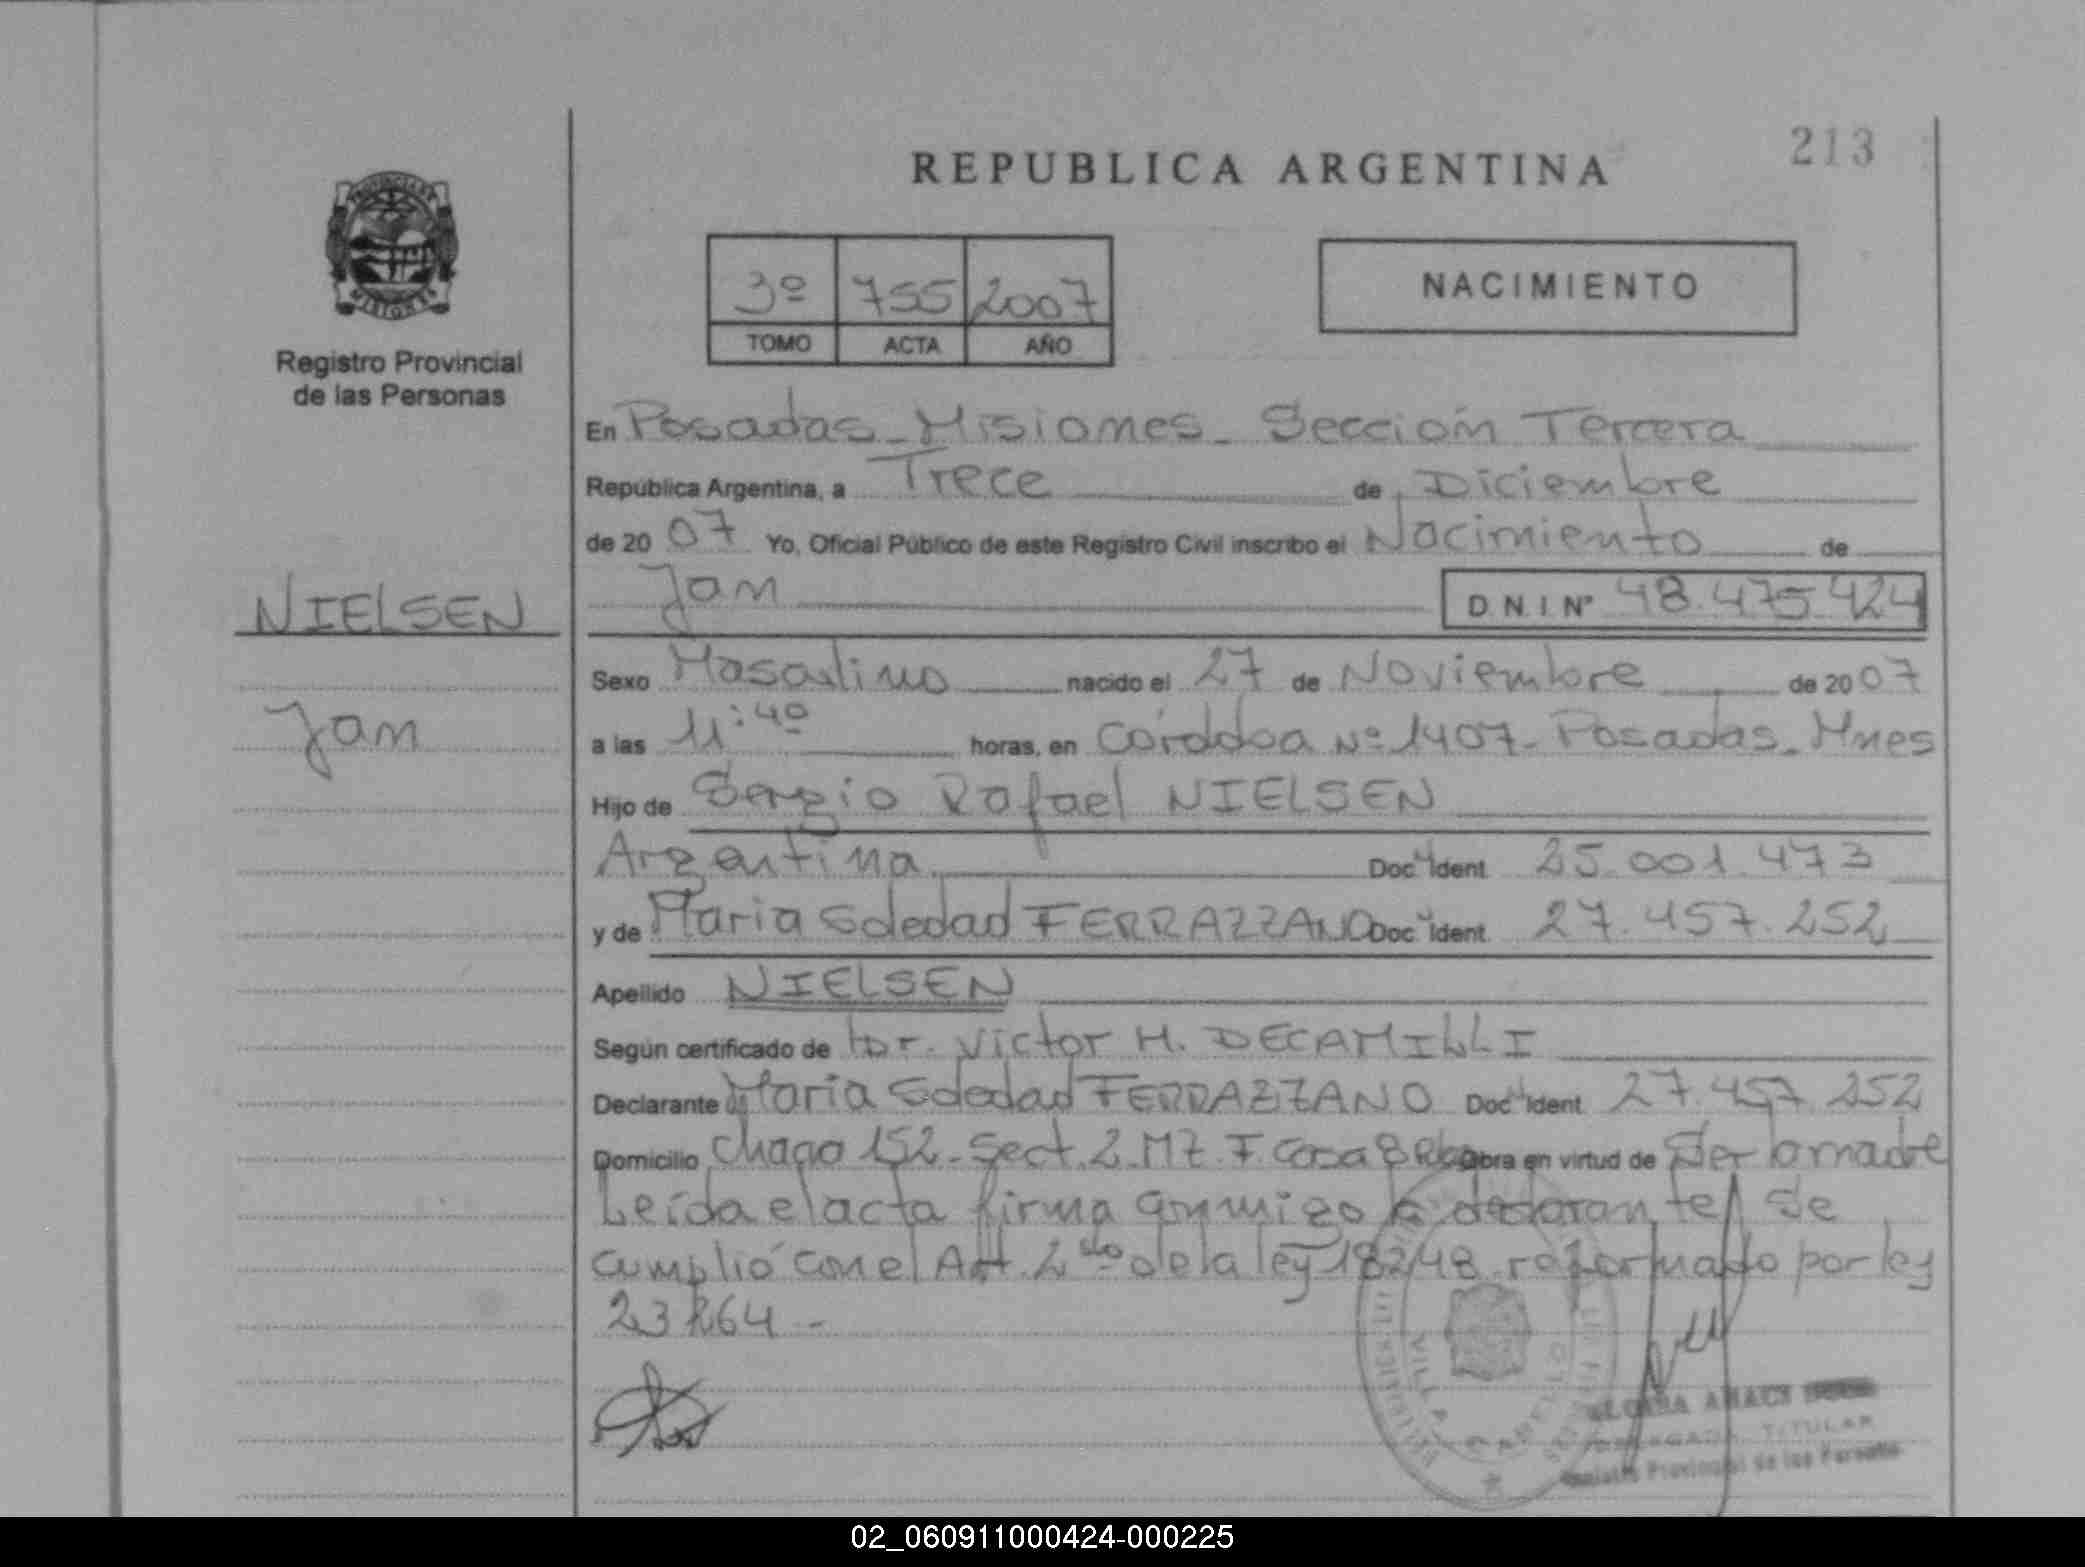 213
REPUBLICA ARGENTINA
PROVINCIA DE
MISIONES
Registro Provincial
de las Personas
3º 755 2007
TOMO ACTA AÑO
NACIMIENTO
En Posadas - Misiones - Sección Tercera
República Argentina, a Trece de Diciembre
de 20 07 Yo, Oficial Público de este Registro Civil inscribo el Nacimiento de
Jan D.N.I. Nº 48.475.424
NIELSEN
Jan
Sexo Masculino nacido el 27 de Noviembre de 20 07
a las 11:40 horas, en Córdoba Nº 1407 - Posadas - Mnes
Hijo de Sergio Rafael NIELSEN
Argentina Doc. Ident 25.001.473
y de Maria Soledad FERRAZZANO Doc. Ident 27.457.252
Apellido NIELSEN
Según certificado de Dr. Victor H. DECAMILLI
Declarante Maria Soledad FERRAZZANO Doc. Ident 27.457.252
Domicilio Chaco 152 - Sect. 2 - MZ. F. Casa 8 Obra en virtud de Ser la madre
Leída el acta firma conmigo la declarante Se
cumplió con el Art. 2do de la ley 18248 reformado por ley
23264 -
VILLA CABELLO
TITULAR
Registro Provincial de las Personas
02_060911000424-000225